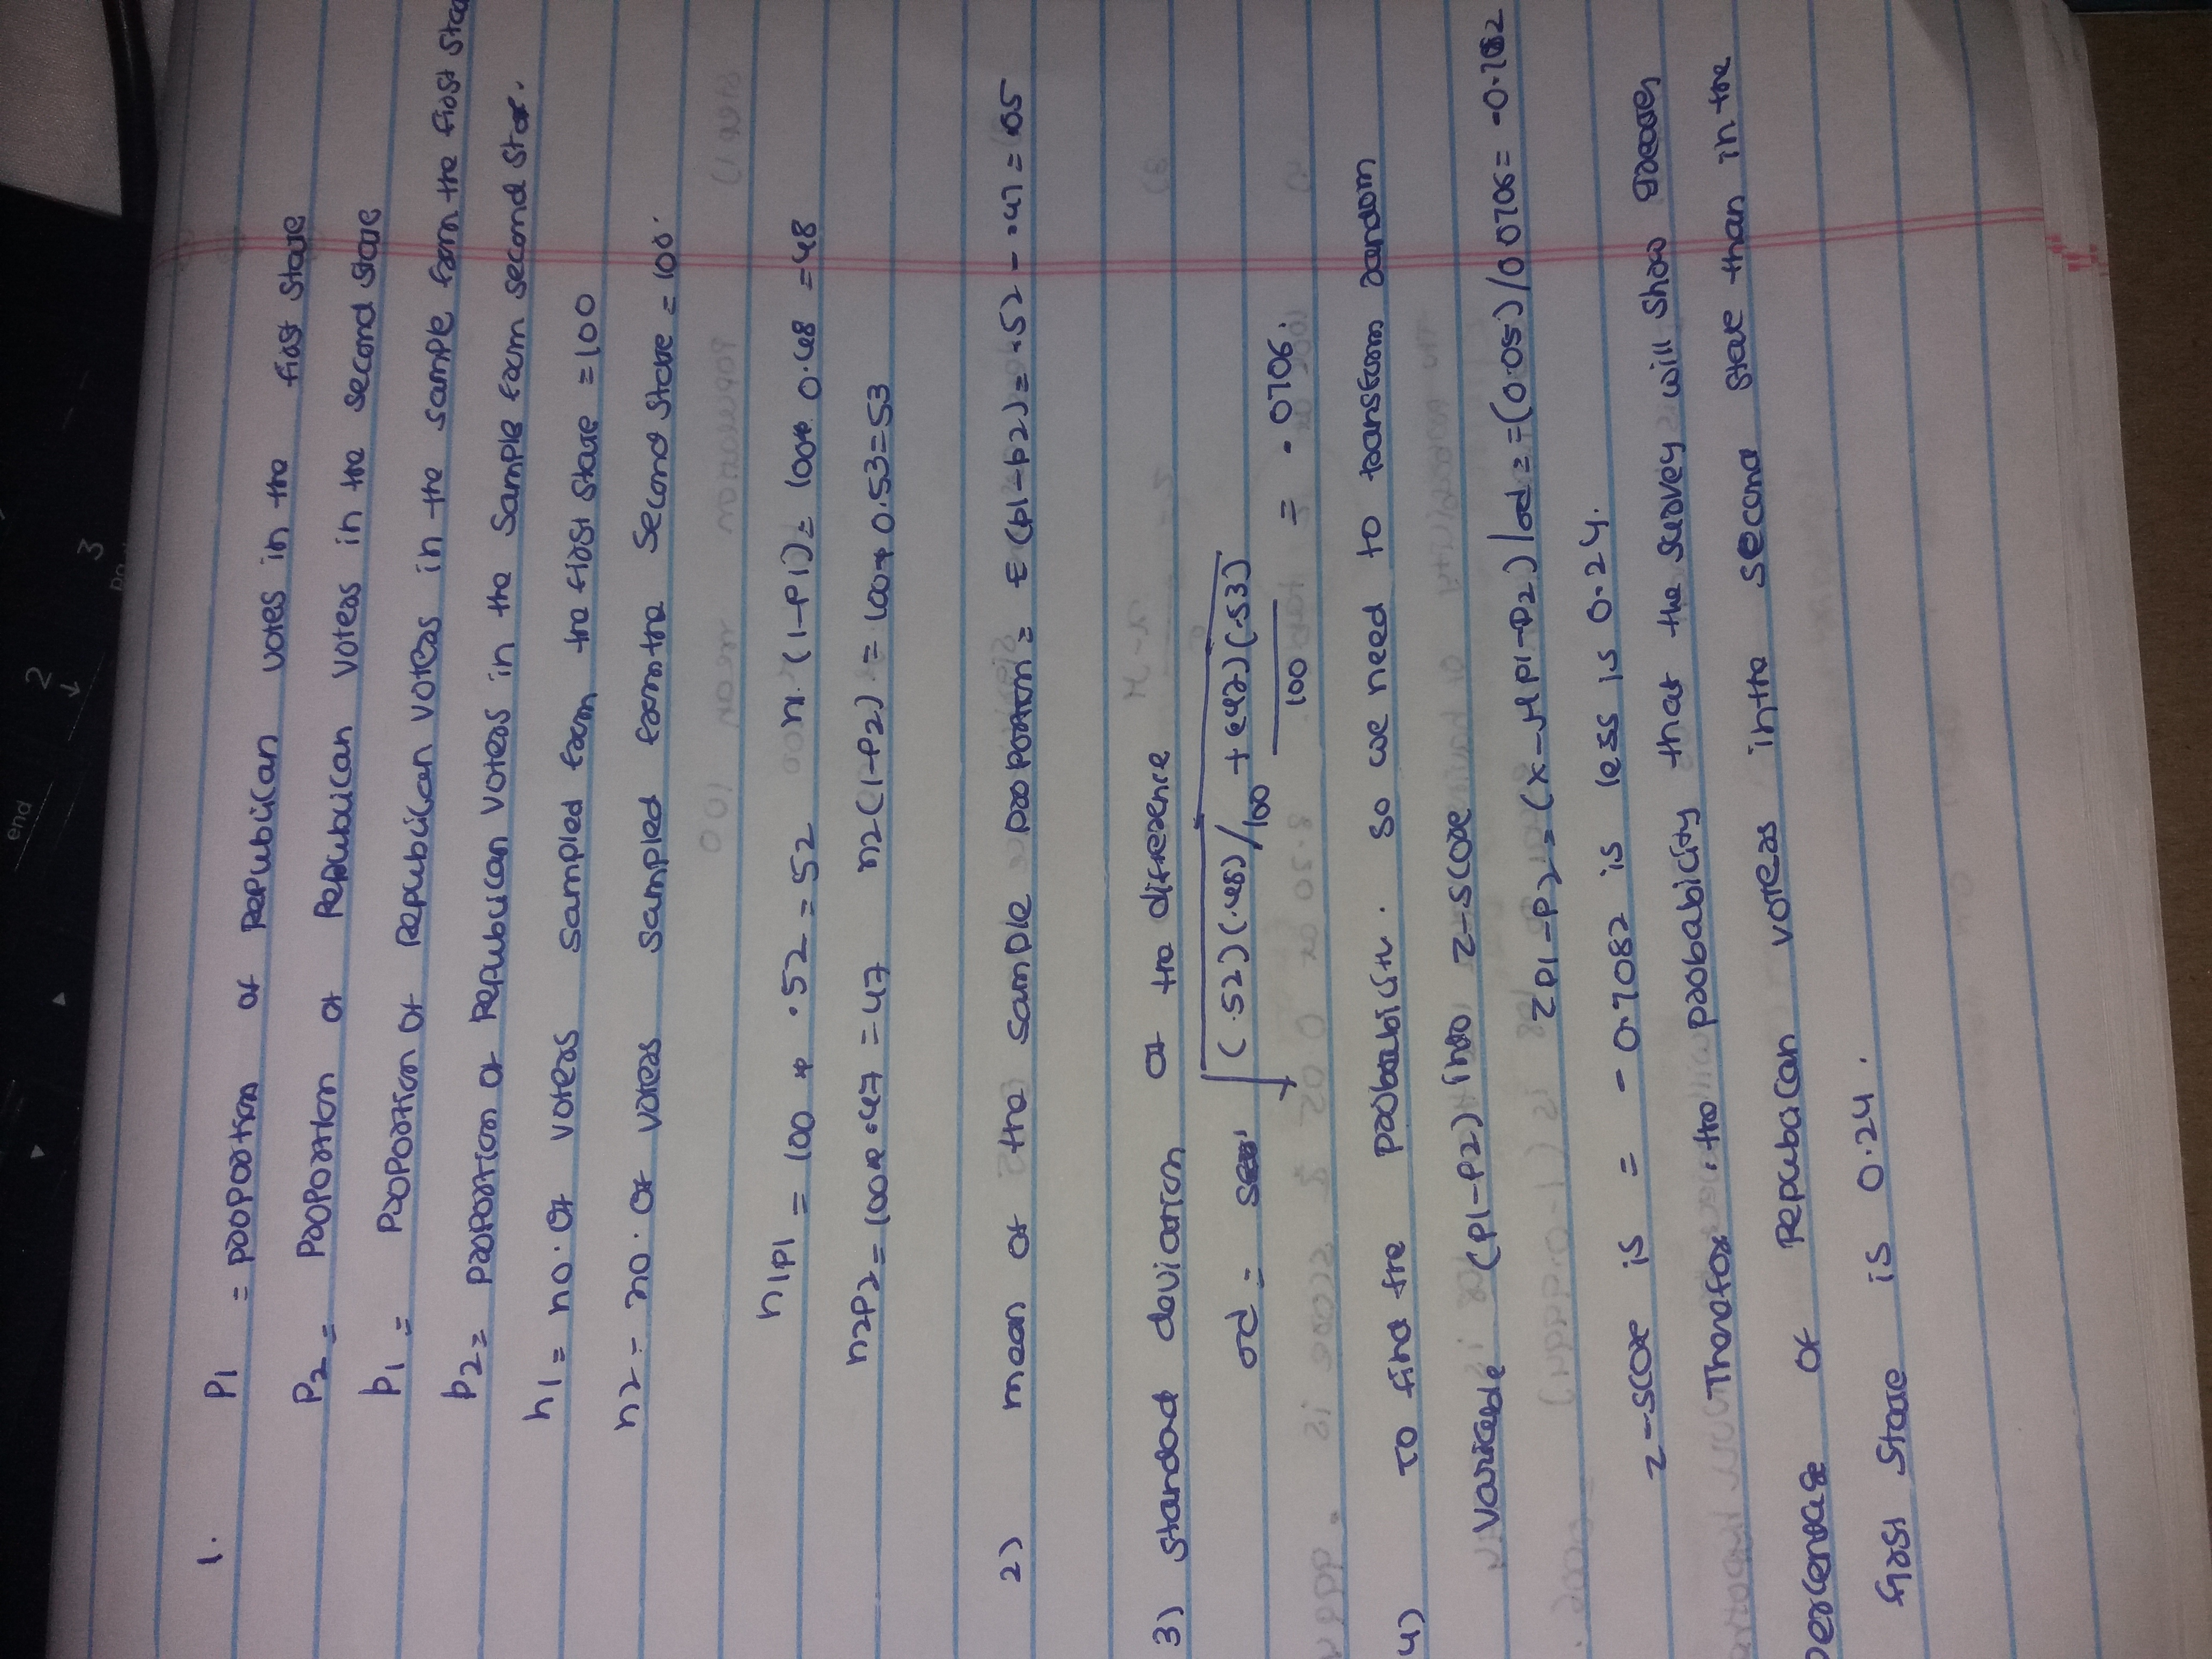 end
2
↓
3
1. P1 = proportion of Republican votes in the first state
P2 = Proportion of Republican voters in the second state
p1 = Proportion of Republican voters in the sample from the first
p2 = proportion of Republican voters in the sample from second state.
n1 = no. of voters sampled from the first state = 100
n2 = no. of voters sampled from the second state = 100.
n1p1 = 100 * .52 = 52 n1 (1-P1) = 100* 0.48 = 48
n2P2 = 100* .47 = 47 n2 (1-P2) = 100* 0.53 = 53
2) mean of the sample proportion = E (p1-p2) = .52 - .47 = .05
3) standad deviation of the difference
σd = √ (.52)(.48)/100 + (.47)(.53)/100 = .0706.
4) To find the probability. so we need to transform random
variable (P1-P2) into z-score
ZP1-P2 = (x-μP1-P2)/σd = =(0.05)/0.0706 = -0.7082
z-score is = -0.7082 is less is 0.24.
Therefore, the probability that the survey will show greater
percentage of Republican voters in the second state than in the
first state is 0.24.